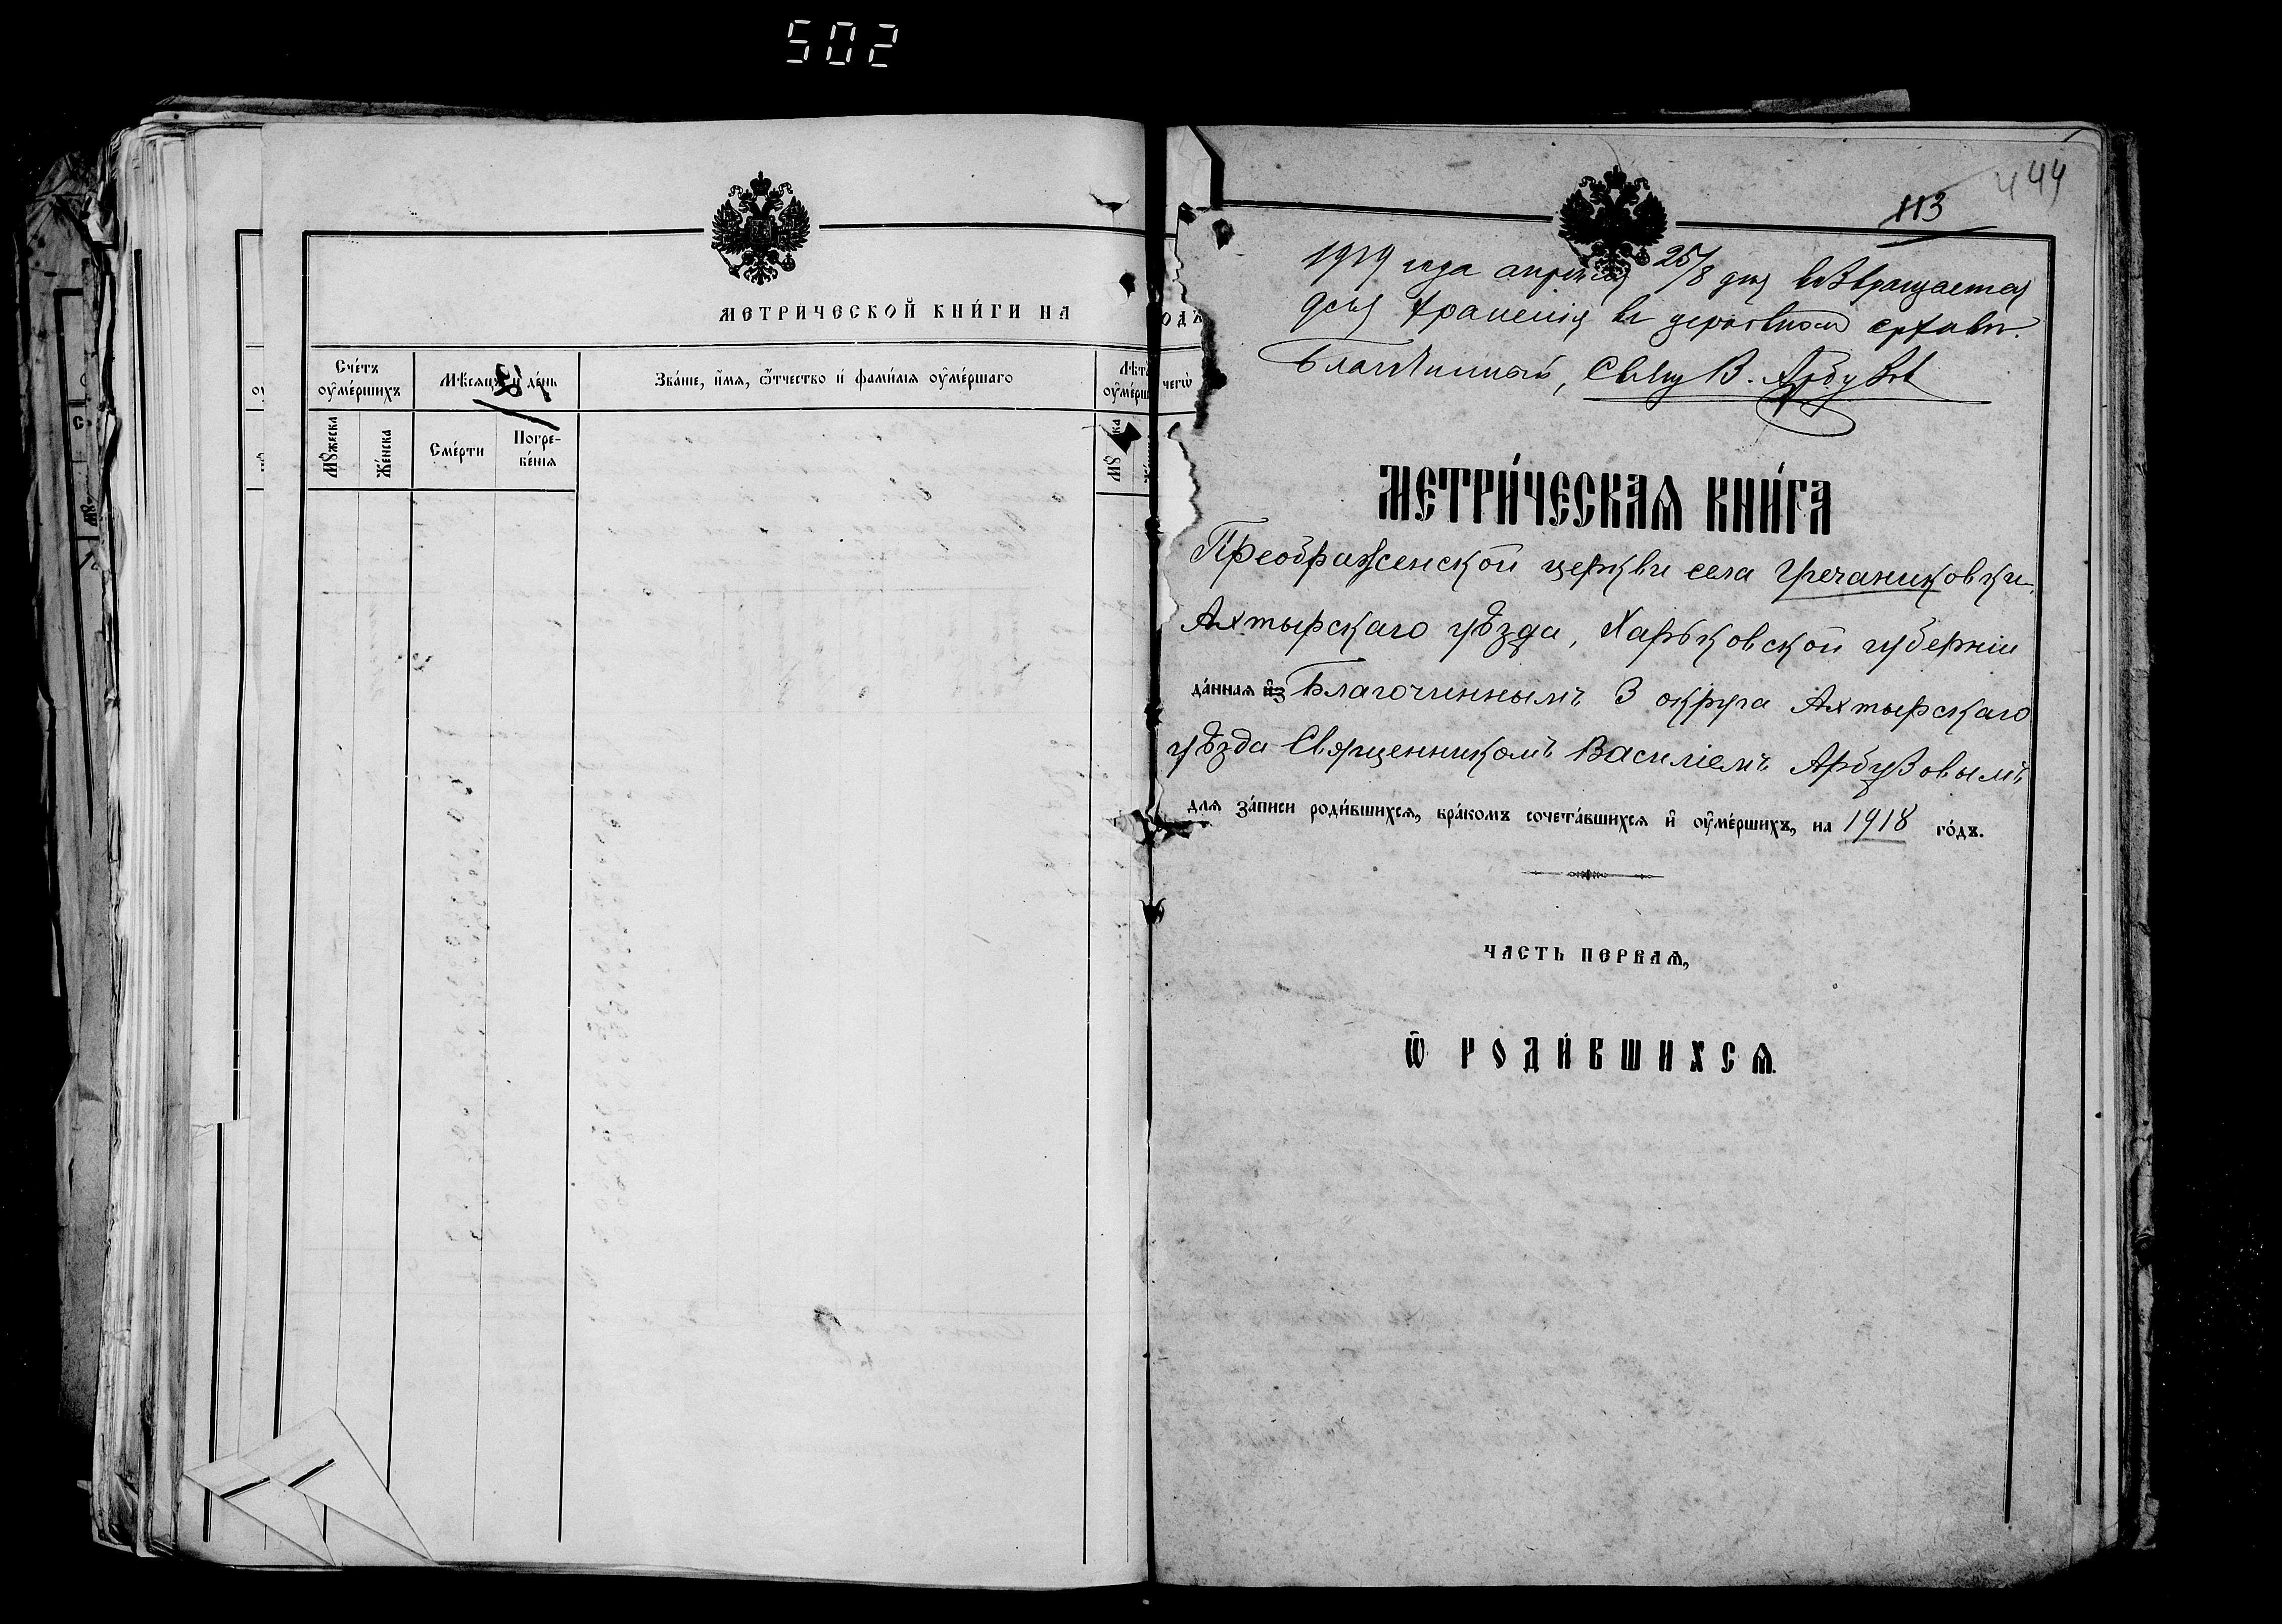 502
МЕТРИЧЕСКОЙ КНИ́ГИ НА
ОДЪ
Сче́тъ оу҆ме́ршихъ
Мѣсяцъ и҆ де́нь
Зва́нїе, и҆́мѧ, ѻ҆́тчество и҆ фами́лїѧ оу҆ме́ршагѡ
Лѣт
оу҆ме́рш
чегѡ̀
Мꙋ́жеска
Же́нска
Сме́рти
Погре-
бе́нїѧ
444
113
1919 года апрѣля 25/8 дня возвращается
для храненія въ церковном архивѣ.
Благочинный, Свящ В. Арбузов
МЕТРИ́ЧЕСКАѦ КНИ́ГА
Преображенской церкви села Гречаниковки
Ахтырскаго уѣзда, Харьковской губерніи
да́ннаѧ и҆з Благочиннымъ 3 округа Ахтырскаго
уѣзда Священникомъ Василіемъ Арбузовымъ
длѧ за́писи роди́вшихсѧ, бра́комъ сочета́вшихсѧ и҆ оу҆ме́ршихъ, на 1918 го́дъ.
ЧАСТЬ ПЕРВАѦ,
Ѡ҆ РОДИ́ВШИХСѦ.